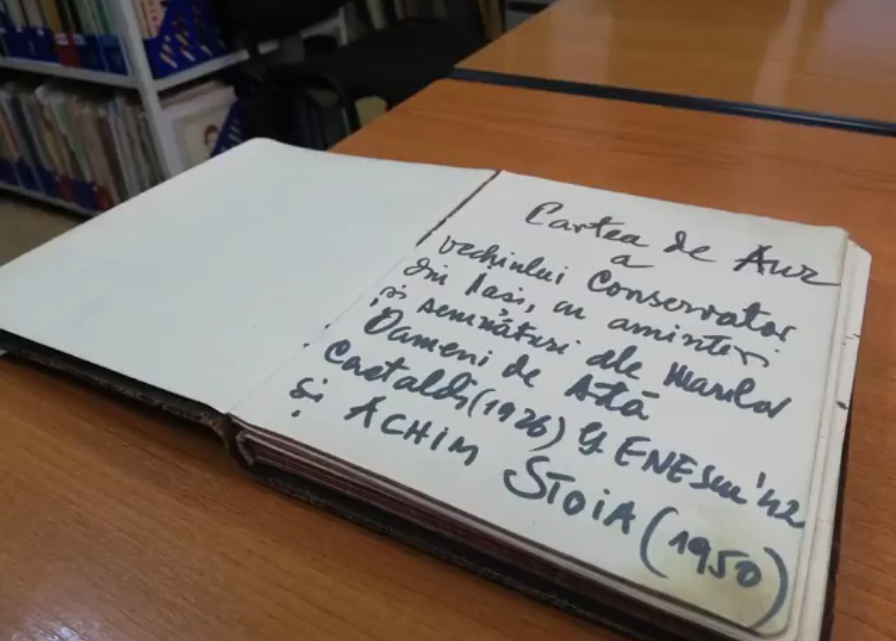 Cartea de Aur
a
vechiului Conservator
din Iasi, cu amintiri
și semnături ale Marilor
Oameni de Artă
Castaldi (1926) G. ENEscu '42
și ACHIM STOIA (1950)